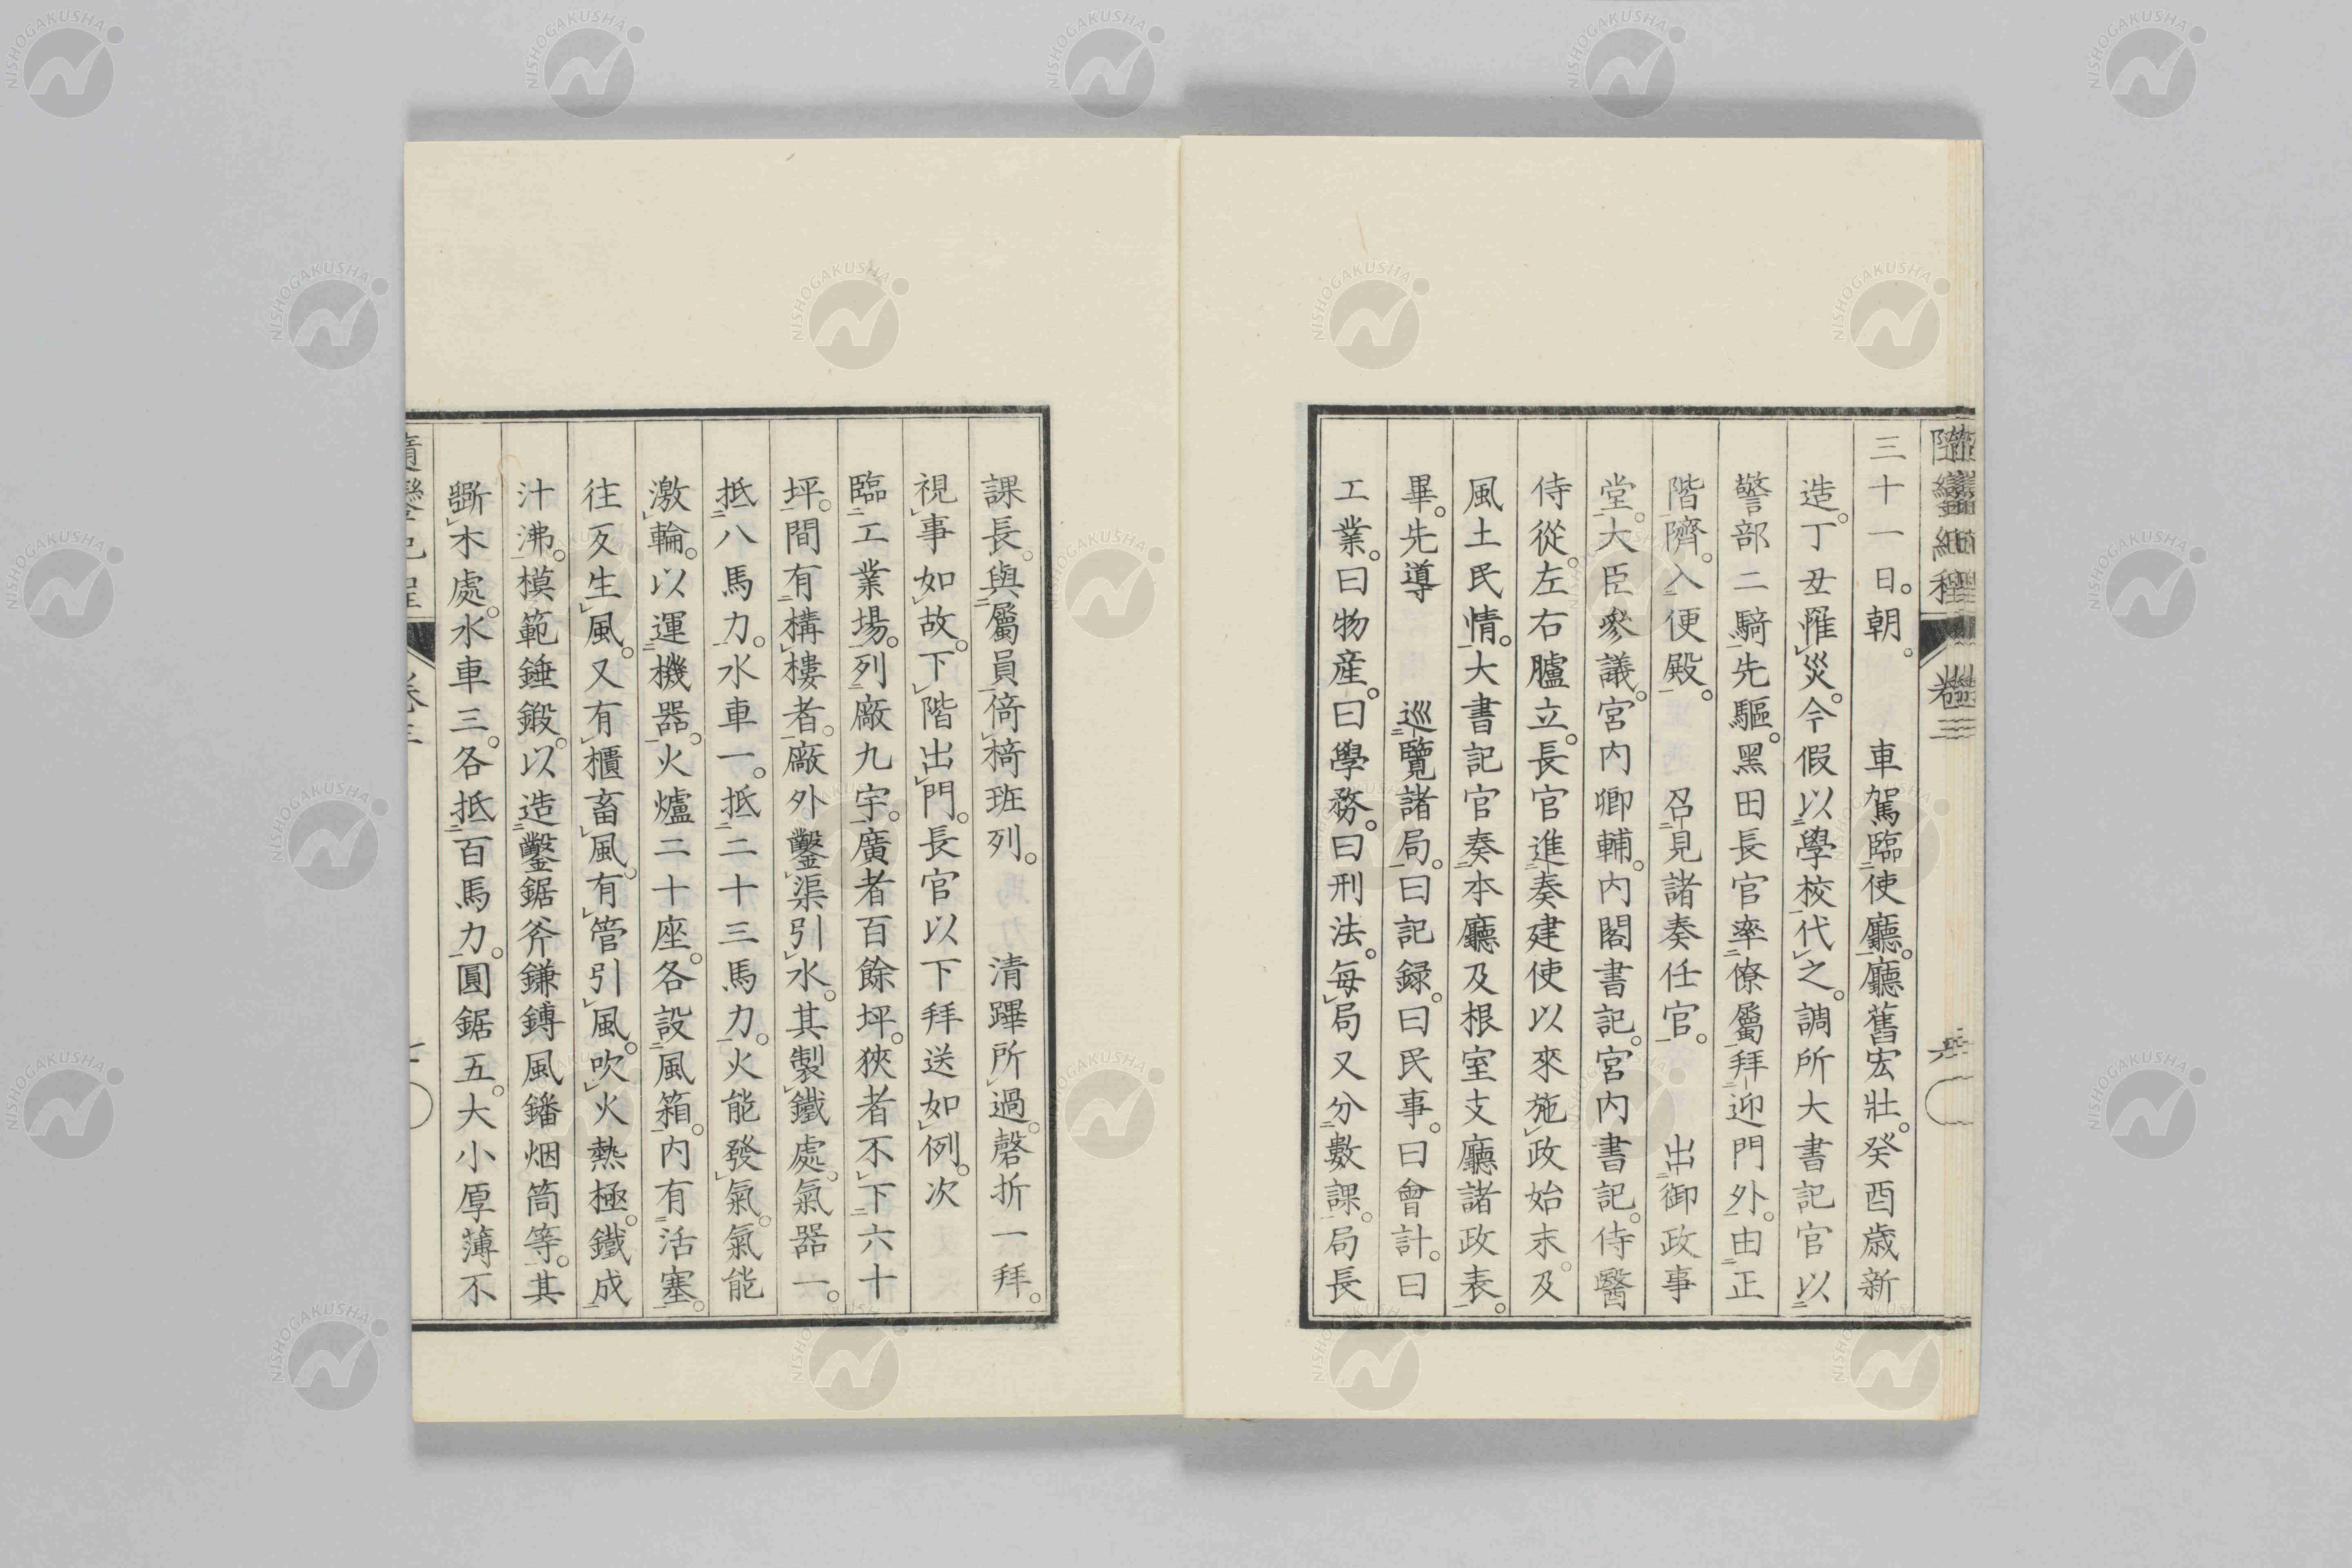 三十一日。朝。車駕臨使廳。廳舊宏壯。癸酉歳新
造。丁丑罹災。今假以學校代之。調所大書記官以
警部二騎先驅。黑田長官率僚屬拜迎門外。由正
階隮。入便殿。召見諸奏任官。出御政事
堂。大臣參議。宮内卿輔。内閣書記。宮内書記。侍醫
侍從。左右臚立。長官進奏建使以來施政始末。及
風土民情。大書記官奏本廳及根室支廳諸政表。
畢。先導巡覽諸局。曰記録。曰民事。曰會計。曰
工業。曰物産。曰學務。曰刑法。每局又分數課。局長
課長。與屬員倚椅班列。清蹕所過。磬折一拜。
視事如故。下階出門。長官以下拜送如例。次
臨工業場。列廠九宇。廣者百餘坪。狹者不下六十
坪。間有構樓者。廠外鑿渠引水。其製鐵處。氣器一。
抵八馬力。水車一。抵二十三馬力。火能發氣。氣能
激輪。以運機器。火爐二十座。各設風箱。内有活塞。
往反生風。又有櫃畜風。有管引風。吹火熱極。鐵成
汁沸。模範錘鍛。以造鑿鋸斧鎌鏄風鐇烟筒等。其
斲木處。水車三。各抵百馬力。圓鋸五。大小厚薄不
NISHOGAKUSHA